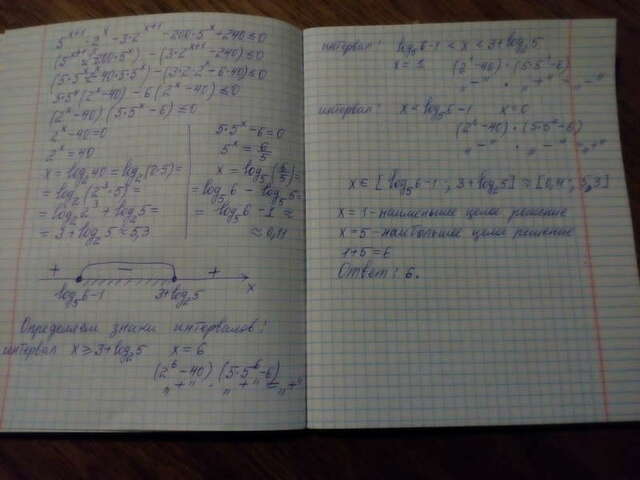 5^(x+1)·2^x - 3·2^(x+1) - 200·5^x + 240 ≤ 0
(5^(x+1)·2^x - 200·5^x) - (3·2^(x+1) - 240) ≤ 0
(5·5^x·2^x - 40·5·5^x) - (3·2·2^x - 6·40) ≤ 0
5·5^x(2^x - 40) - 6(2^x - 40) ≤ 0
(2^x - 40)(5·5^x - 6) ≤ 0
2^x - 40 = 0
2^x = 40
x = log₂40 = log₂(8·5) =
= log₂(2³·5) =
= log₂2³ + log₂5 =
= 3 + log₂5 ≈ 5,3
5·5^x - 6 = 0
5^x = 6/5
x = log₅(6/5) =
= log₅6 - log₅5 =
= log₅6 - 1 ≈
≈ 0,11
+ - +
log₅6-1 3+log₂5 x
Определяем знаки интервалов:
интервал x ≥ 3+log₂5 x = 6
(2⁶-40)·(5·5⁶-6)
"+" · "+" = "+"
интервал: log₅6-1 < x < 3+log₂5
x = 1 (2¹-40)·(5·5¹-6)
"-" · "+" = "-"
интервал: x < log₅6-1 x=0
(2⁰-40)·(5·5⁰-6)
"-" · "-" = "+"
x ∈ [log₅6-1; 3+log₂5] ≈ [0,11; 5,3]
x = 1 - наименьшее целое решение
x = 5 - наибольшее целое решение
1+5=6
Ответ: 6.